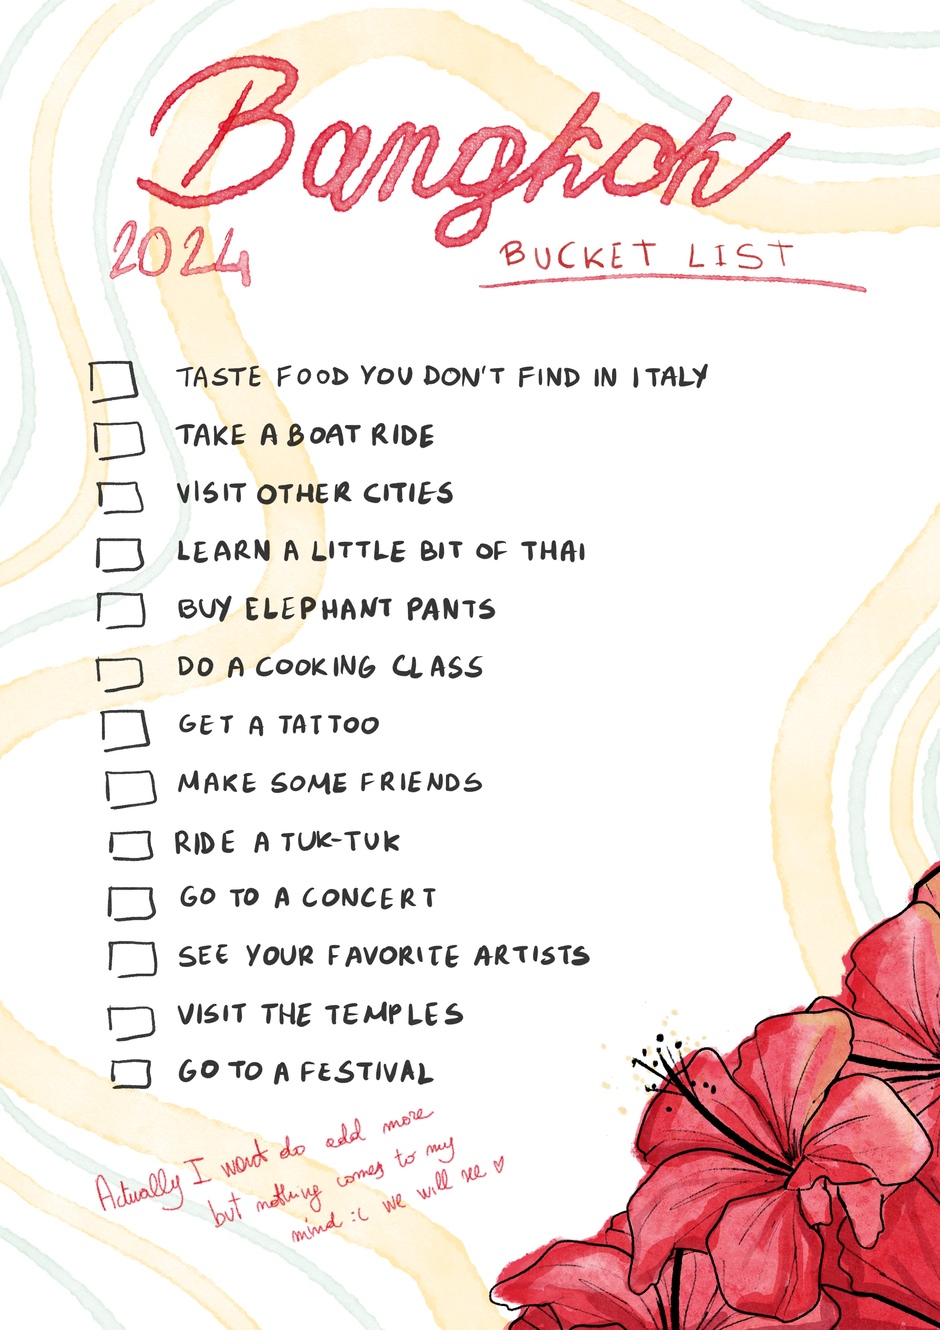 Bangkok
2024
BUCKET LIST
TASTE FOOD YOU DON'T FIND IN ITALY
TAKE A BOAT RIDE
VISIT OTHER CITIES
LEARN A LITTLE BIT OF THAI
BUY ELEPHANT PANTS
DO A COOKING CLASS
GET A TATTOO
MAKE SOME FRIENDS
RIDE A TUK-TUK
GO TO A CONCERT
SEE YOUR FAVORITE ARTISTS
VISIT THE TEMPLES
GO TO A FESTIVAL
Actually I want do add more
but nothing comes to my
mind :( we will see ♡